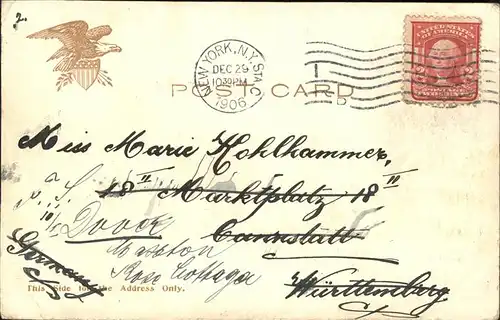 2.
NEW YORK, N.Y. STA. C
DEC 29
10 30 PM
1906
1
D
UNITED STATES OF AMERICA
2 2
POST CARD
Miss Marie Kohlhammer,
18 II Marktplatz 18 II
Cannstatt
Württemberg
Germany
Rose Cottage
This Side for the Address Only.